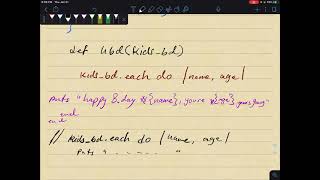 def hbd(kids_bd)
kids_bd.each do |name, age|
puts "happy B.day #{name}, you're #{age}, years young"
end
end
// kids_bd.each do |name, age|
puts " "